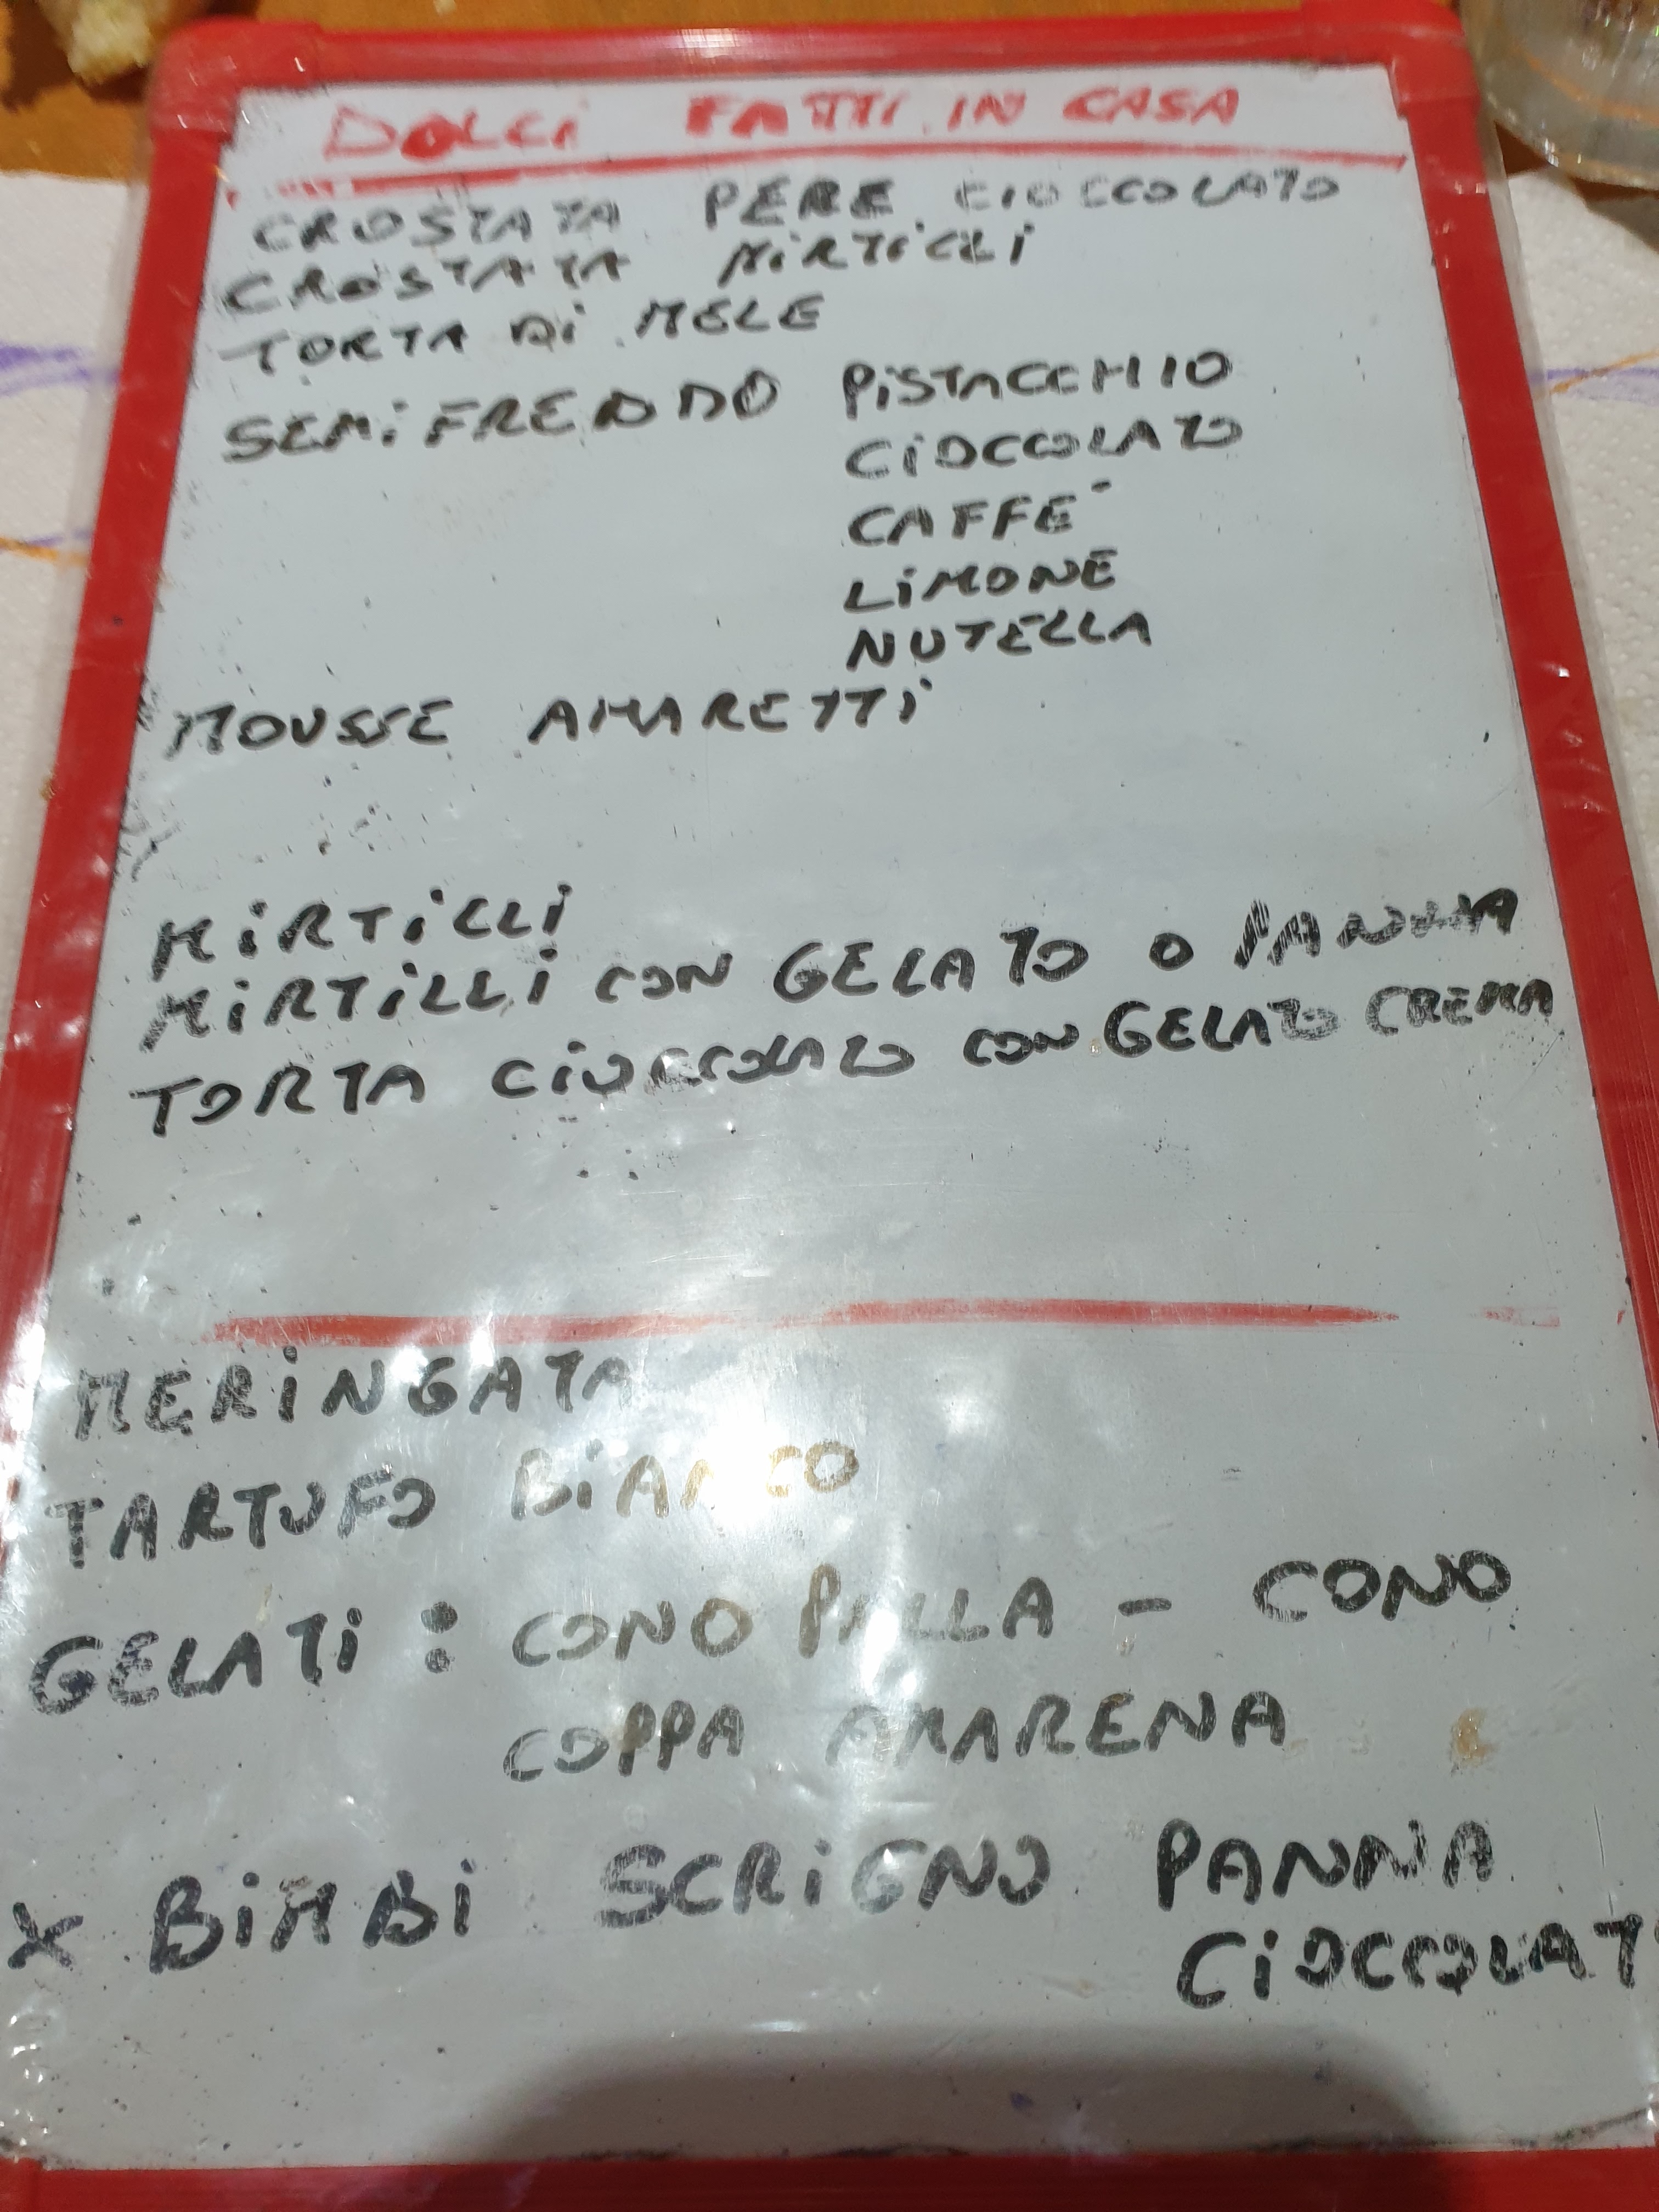 DOLCI FATTI IN CASA
CROSTATA PERE CIOCCOLATO
CROSTATA MIRTILLI
TORTA DI MELE
SEMIFREDDO PISTACCHIO
CIOCCOLATO
CAFFE'
LIMONE
NUTELLA
MOUSSE AMARETTI
MIRTILLI
MIRTILLI CON GELATO O PANNA
TORTA CIOCCOLATO CON GELATO CREMA
MERINGATA
TARTUFO BIANCO
GELATI: CONO PALLA - CONO
COPPA AMARENA
X BIMBI SCRIGNO PANNA
CIOCCOLAT